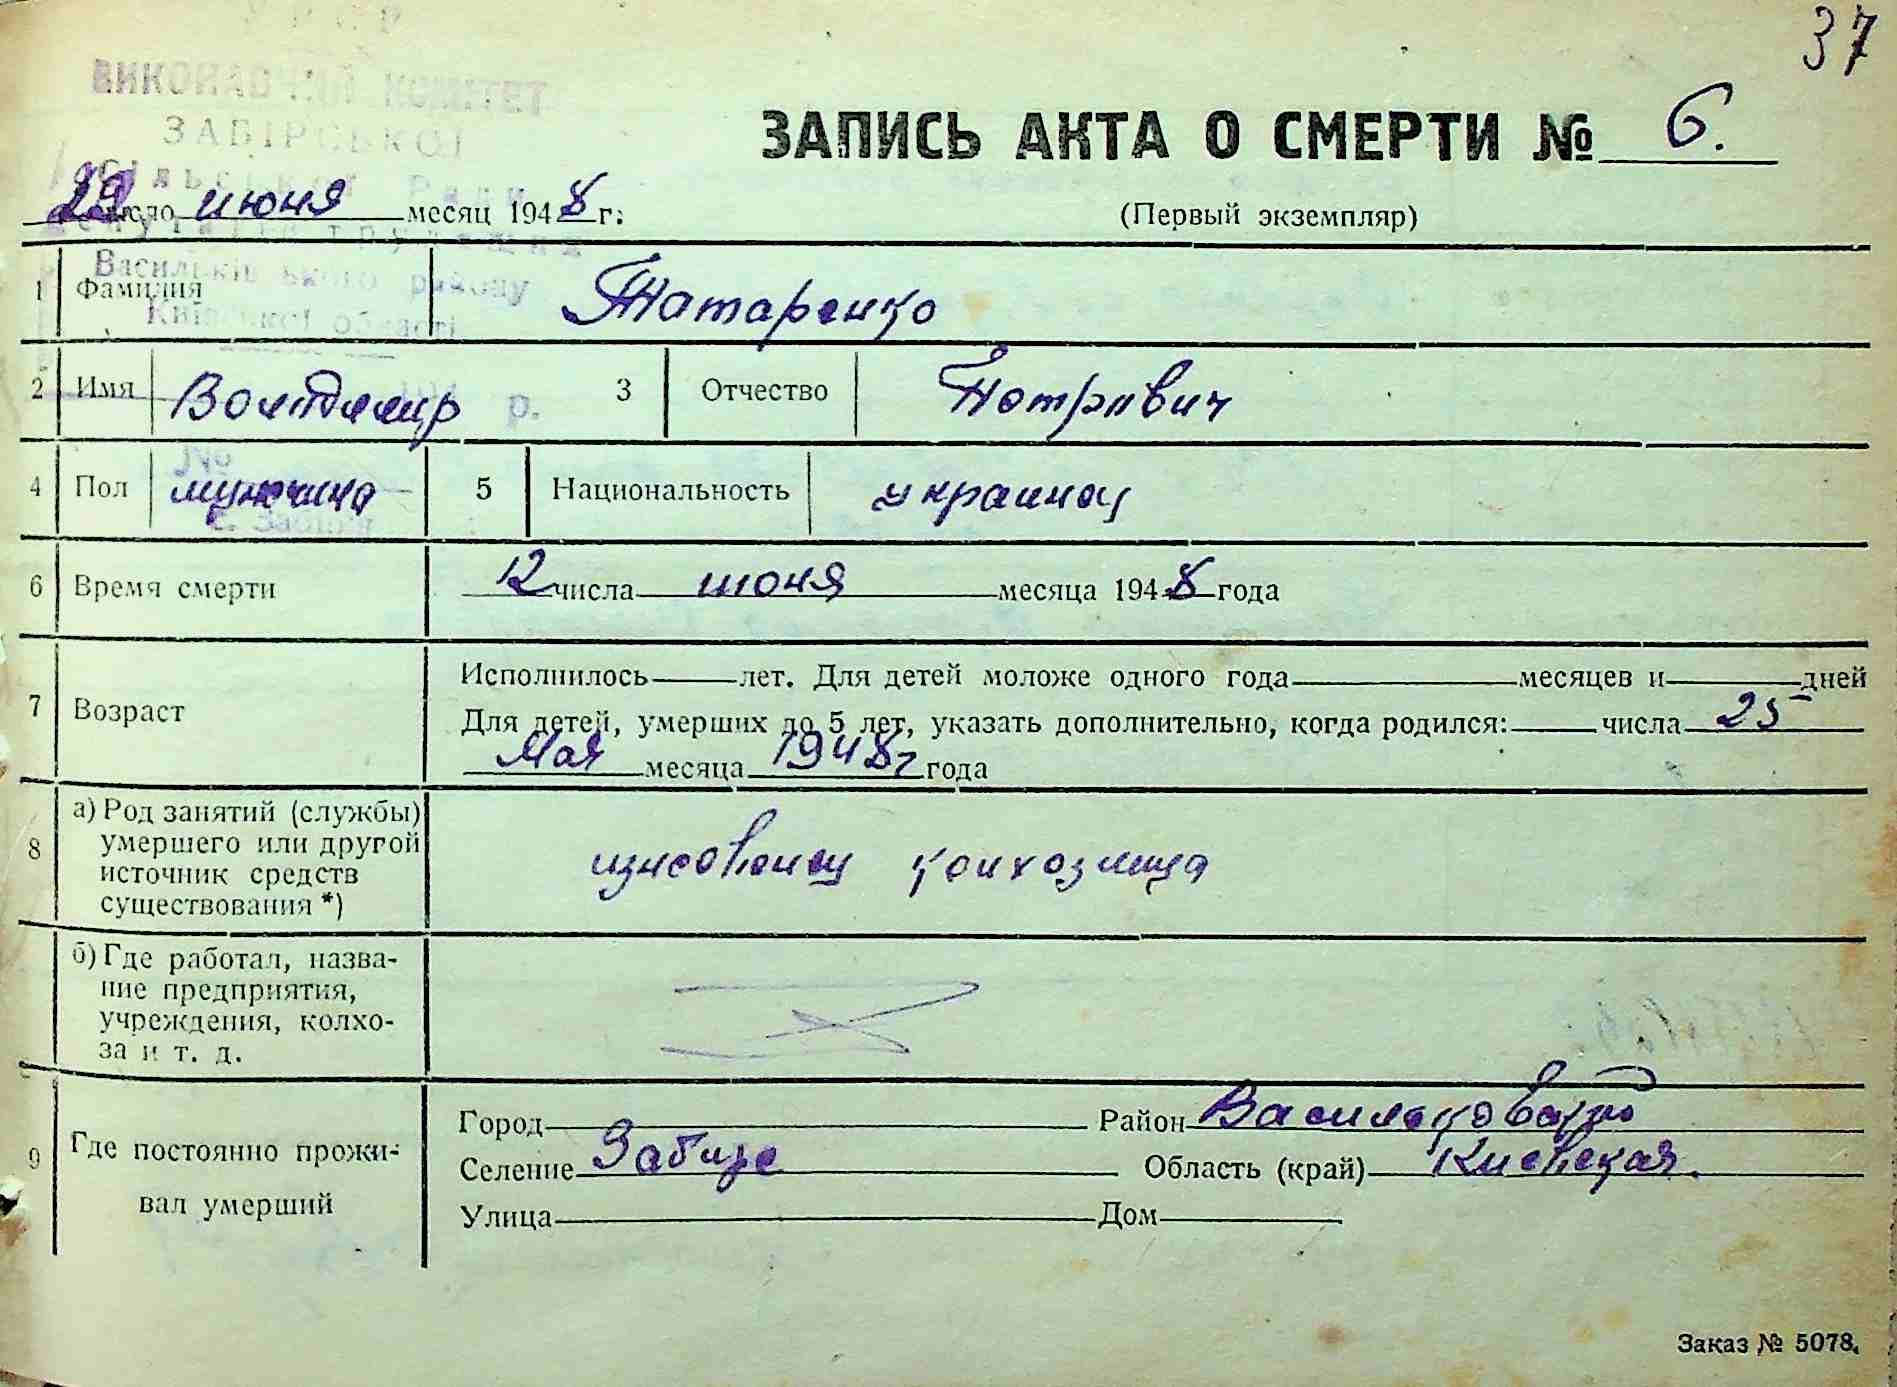 37
УРСР
ВИКОНАВЧИЙ КОМІТЕТ
ЗАБІРСЬКОЇ
Сільської Ради
депутатів трудящих
Васильківського району
Київської області
р.
№
с. Забір'я
ЗАПИСЬ АКТА О СМЕРТИ № 6.
29 число июня месяц 1948 г.
(Первый экземпляр)
1 Фамилия Татаренко
2 Имя Володимир 3 Отчество Петрович
4 Пол мужчина 5 Национальность украинец
6 Время смерти 12 числа июня месяца 1948 года
7 Возраст
Исполнилось лет. Для детей моложе одного года месяцев и дней
Для детей, умерших до 5 лет, указать дополнительно, когда родился: числа 25
Мая месяца 1948г года
8 а) Род занятий (службы)
умершего или другой
источник средств
существования *)
колхозница
б) Где работал, назва-
ние предприятия,
учреждения, колхо-
за и т. д.
9 Где постоянно прожи-
вал умерший
Город Район
Селение Забирье Область (край) Киевская.
Улица Дом
Заказ № 5078.